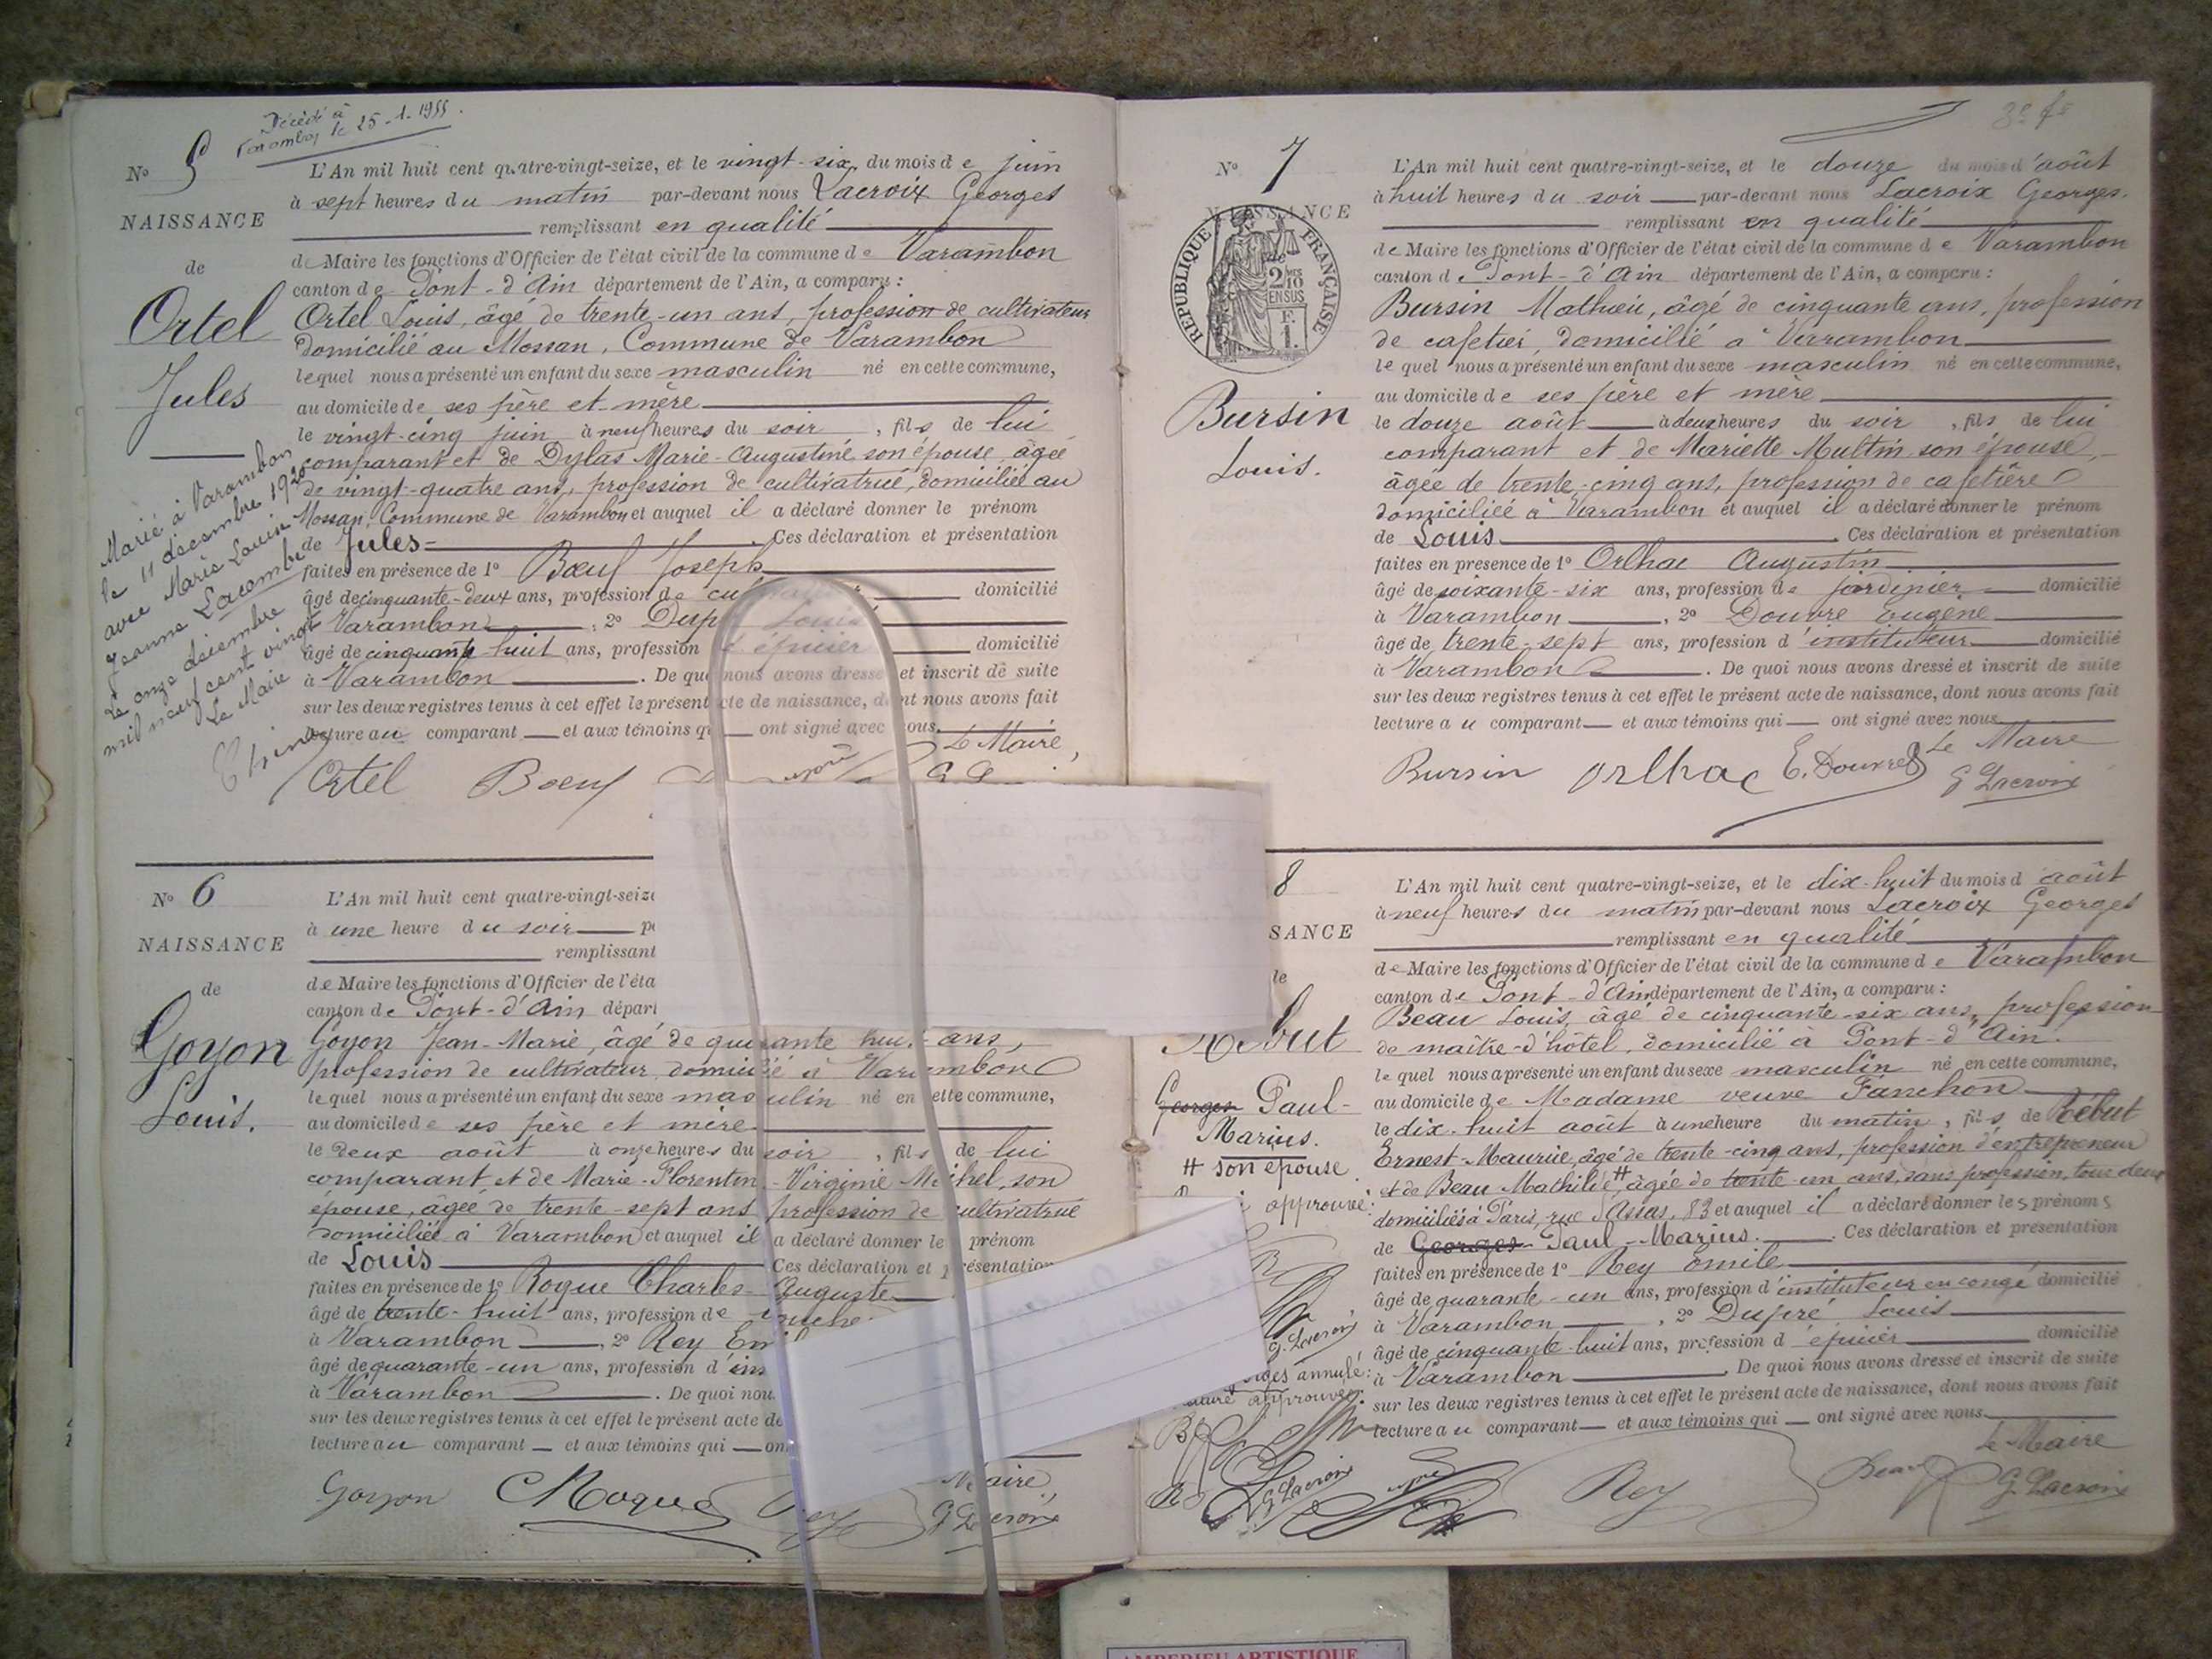 Décédé à
Varambon le 25-1-1955.
No 5
L'An mil huit cent quatre-vingt-seize, et le vingt-six, du mois de juin
à sept heures du matin par-devant nous Lacroix Georges
NAISSANCE
remplissant en qualité
de
de Maire les fonctions d'Officier de l'état civil de la commune de Varambon
canton de Pont-d'Ain département de l'Ain, a comparu :
Ortel
Ortel Louis, âgé de trente-un ans, profession de cultivateur
domicilié au Mossan, Commune de Varambon
Jules
lequel nous a présenté un enfant du sexe masculin né en cette commune,
au domicile de ses père et mère
le vingt-cinq juin à neuf heures du soir, fils de lui
comparant et de Dylas Marie-Augustine son épouse, âgée
de vingt-quatre ans, profession de cultivatrice, domiciliée au
Mossan, Commune de Varambon et auquel il a déclaré donner le prénom
de Jules Ces déclaration et présentation
faites en présence de 1° Bœuf Joseph
âgé de cinquante-deux ans, profession de domicilié
à Varambon, 2° Dupré Louis
âgé de cinquante huit ans, profession d'épicier domicilié
à Varambon. De quoi nous avons dressé et inscrit de suite
sur les deux registres tenus à cet effet le présent acte de naissance, dont nous avons fait
lecture au comparant et aux témoins qui ont signé avec nous.
Marié à Varambon
le 11 décembre 1920
avec Marie Louise
Jeanne Lacombe
Le onze décembre
mil neuf cent vingt
Le Maire
Le Maire,
Ortel Bœuf
No 6
L'An mil huit cent quatre-vingt-seize
à une heure du soir
NAISSANCE
remplissant
de
de Maire les fonctions d'Officier de l'éta
canton de Pont-d'Ain départ
Goyon
Goyon Jean-Marie, âgé de quarante huit ans,
profession de cultivateur domicilié à Varambon
Louis.
lequel nous a présenté un enfant du sexe masculin né en cette commune,
au domicile de ses père et mère
le deux août à onze heures du soir, fils de lui
comparant et de Marie-Florentin-Virginie Michel, son
épouse, âgée de trente-sept ans profession de cultivatrice
domiciliée à Varambon et auquel il a déclaré donner le prénom
de Louis Ces déclaration et présentation
faites en présence de 1° Roque Charles-Auguste
âgé de trente-huit ans, profession de
à Varambon, 2° Rey Em
âgé de quarante-un ans, profession d'ins
à Varambon. De quoi nou
sur les deux registres tenus à cet effet le présent acte de
lecture au comparant et aux témoins qui on
Maire,
Goyon CRoque Rey G Lacroix
No 7
L'An mil huit cent quatre-vingt-seize, et le douze du mois d'août
à huit heures du soir par-devant nous Lacroix Georges.
NAISSANCE
RÉPUBLIQUE FRANÇAISE
2 10 MES EN SUS
F. 1.
remplissant en qualité
de Maire les fonctions d'Officier de l'état civil de la commune de Varambon
canton de Pont-d'Ain département de l'Ain, a comparu :
Bursin Mathieu, âgé de cinquante ans, profession
de cafetier, domicilié à Varambon
lequel nous a présenté un enfant du sexe masculin né en cette commune,
au domicile de ses père et mère
Bursin
le douze août à deux heures du soir, fils de lui
Louis.
comparant et de Mariette Multin son épouse,
âgée de trente-cinq ans, profession de cafetière
domiciliée à Varambon et auquel il a déclaré donner le prénom
de Louis. Ces déclaration et présentation
faites en présence de 1° Orlhac Augustin
âgé de soixante-six ans, profession de jardinier domicilié
à Varambon, 2° Douvre Eugène
âgé de trente-sept ans, profession d'instituteur domicilié
à Varambon. De quoi nous avons dressé et inscrit de suite
sur les deux registres tenus à cet effet le présent acte de naissance, dont nous avons fait
lecture au comparant et aux témoins qui ont signé avec nous
Le Maire
Bursin Orlhac E. Douvre G Lacroix
8
L'An mil huit cent quatre-vingt-seize, et le dix-huit du mois d'août
à neuf heures du matin par-devant nous Lacroix Georges
SANCE
remplissant en qualité
de Maire les fonctions d'Officier de l'état civil de la commune de Varambon
canton de Pont-d'Ain département de l'Ain, a comparu :
Beau Louis, âgé de cinquante-six ans, profession
Rebut
de maître-d'hôtel, domicilié à Pont-d'Ain.
lequel nous a présenté un enfant du sexe masculin né en cette commune,
Georges Paul-
Marius.
au domicile de Madame veuve Fanchon
le dix-huit août à une heure du matin, fils de Rébut
# son épouse
approuvé:
Ernest-Maurice, âgé de trente-cinq ans, profession d'entrepreneur
et de Beau Mathilde #, âgée de trente-un ans, sans profession, tous deux
domiciliés à Paris, rue d'Assas, 83 et auquel il a déclaré donner les prénoms
de Georges Paul-Marius. Ces déclaration et présentation
faites en présence de 1° Rey Émile
âgé de quarante-un ans, profession d'instituteur en congé domicilié
à Varambon, 2° Dupré Louis
âgé de cinquante-huit ans, profession d'épicier domicilié
à Varambon. De quoi nous avons dressé et inscrit de suite
sur les deux registres tenus à cet effet le présent acte de naissance, dont nous avons fait
lecture au comparant et aux témoins qui ont signé avec nous.
G. Lacroix
annulé:
approuvée.
Le Maire
G Lacroix Rey Beau G. Lacroix
AMBERIEU ARTISTIQUE